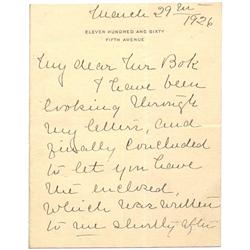 March 29th
1926
ELEVEN HUNDRED AND SIXTY
FIFTH AVENUE
My dear Mr Bok
I have been
looking through
my letters, and
finally concluded
to let you have
the enclosed,
which was written
to me shortly after